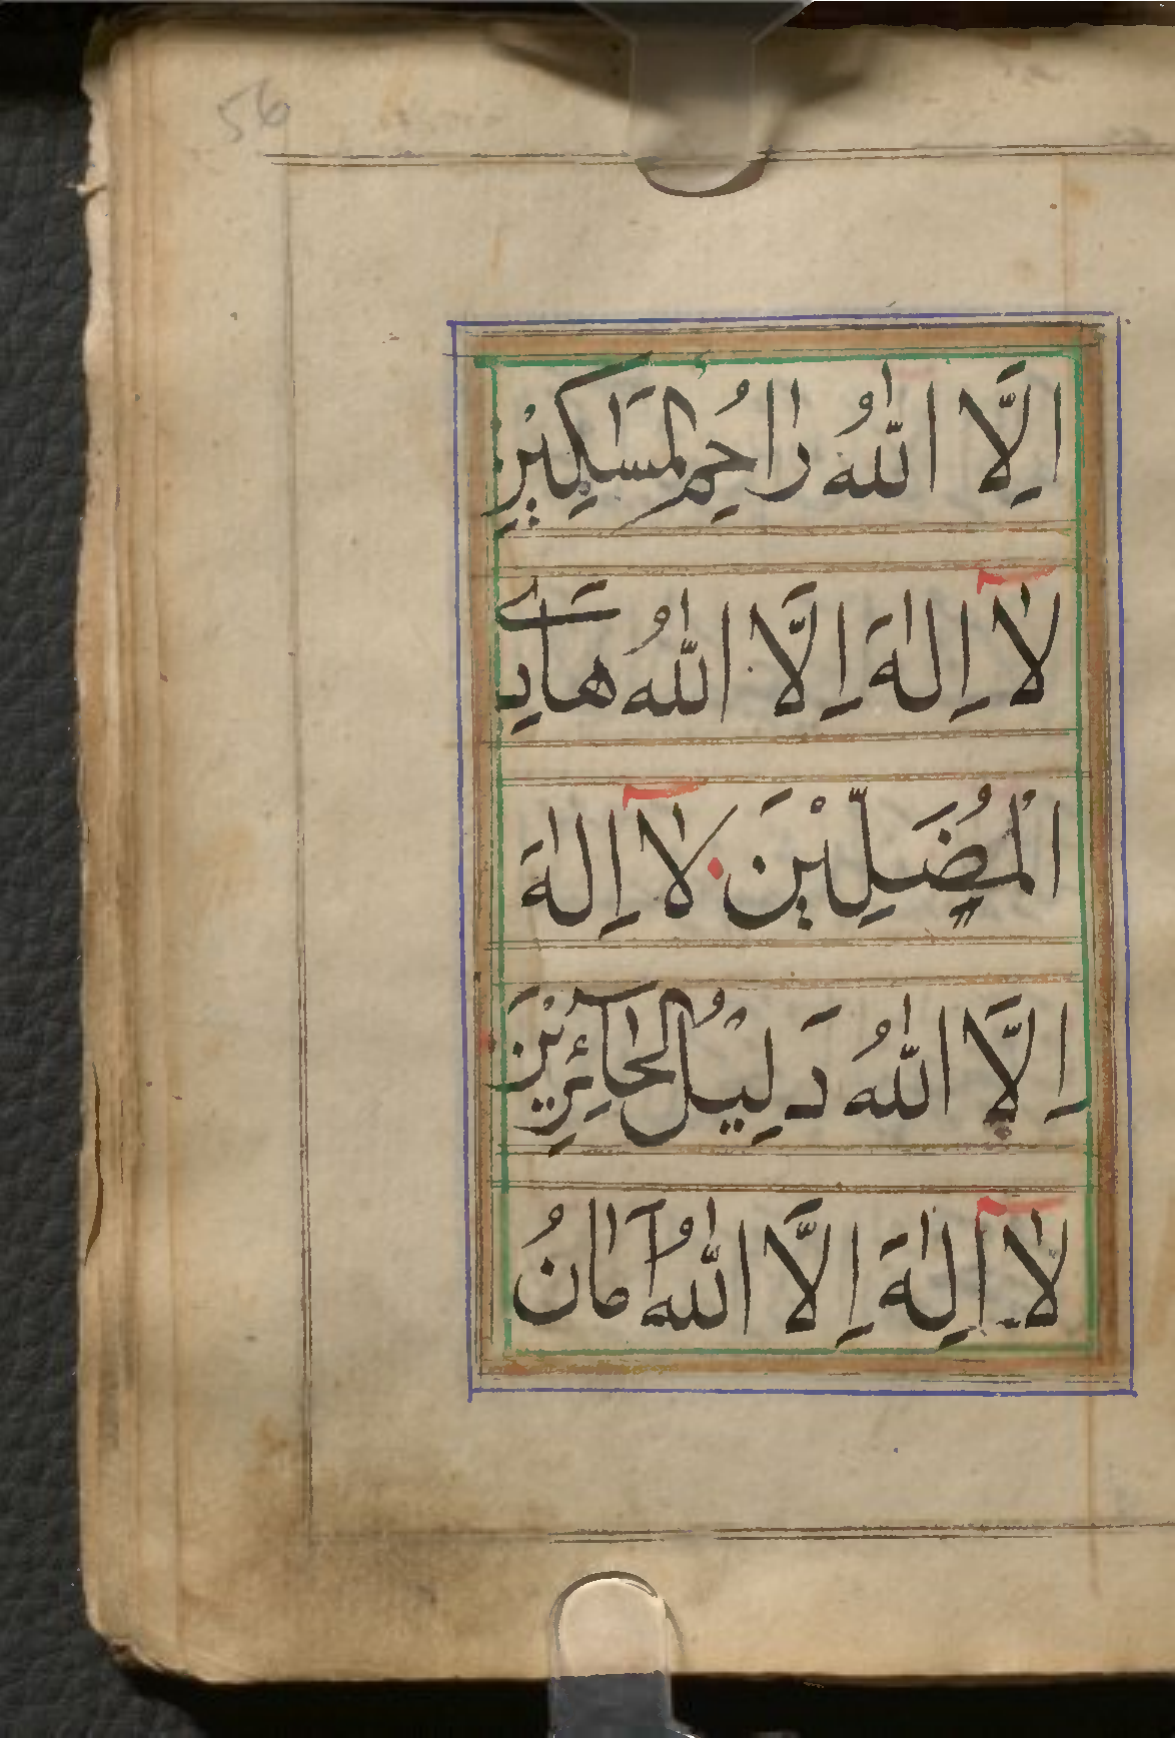 56
اِلَّا اللّٰهُ رَاحِمُ الْمَسَاكِيْنِ
لَا اِلٰهَ اِلَّا اللّٰهُ هَادِي
الْمُضِلِّيْنَ لَا اِلٰهَ
اِلَّا اللّٰهُ دَلِيْلُ الْحَائِرِيْنَ
لَا اِلٰهَ اِلَّا اللّٰهُ اَمَانُ